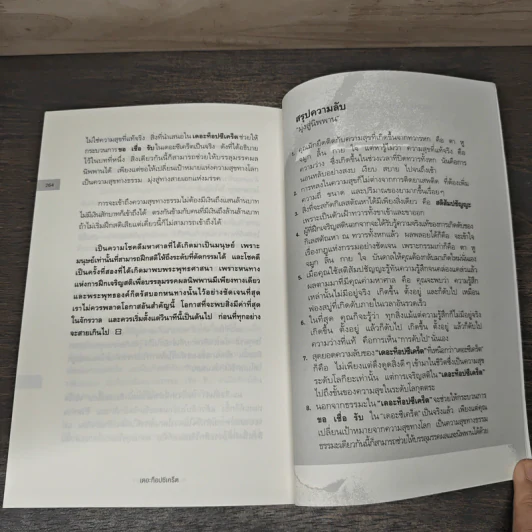 ไม่ใช่ความสุขที่แท้จริง สิ่งที่นำเสนอใน เดอะท็อปซีเคร็ต ช่วยให้
กระบวนการ ขอ เชื่อ รับ ในเดอะซีเคร็ตเป็นจริง ดังที่ได้อธิบาย
ไว้ในบทที่หนึ่ง สิ่งเดียวกันนี้ก็สามารถช่วยให้บรรลุมรรคผล
นิพพานได้ เพียงแต่ขอให้เปลี่ยนเป้าหมายแห่งความสุขทางโลก
เป็นความสุขทางธรรม มุ่งสู่ทางสายเอกแห่งมรรค
264
การจะเข้าถึงความสุขทางธรรมไม่ต้องมีเงินถึงแสนล้านบาท
ไม่มีเงินสักบาทก็เข้าถึงได้ ตรงกันข้ามกับคนที่มีเงินถึงล้านล้านบาท
ถ้าไม่เริ่มฝึกสติแม้แต่เดี๋ยวนี้ก็ไม่สามารถเข้าถึงได้
เป็นความโชคดีมหาศาลที่ได้เกิดมาเป็นมนุษย์ เพราะ
มนุษย์เท่านั้นที่สามารถฝึกสติให้ถึงระดับที่ตัดกรรมได้ และโชคดี
เป็นครั้งที่สองที่ได้เกิดมาพบพระพุทธศาสนา เพราะหนทาง
แห่งการฝึกเจริญสติเพื่อบรรลุมรรคผลนิพพานมีเพียงทางเดียว
และพระพุทธองค์ก็ตรัสบอกหนทางนั้นไว้อย่างชัดเจนที่สุด
เราไม่ควรพลาดโอกาสอันสำคัญนี้ โอกาสที่จะพบสิ่งมีค่าที่สุด
ในจักรวาล และควรเริ่มตั้งแต่วินาทีนี้เป็นต้นไป ก่อนที่ทุกอย่าง
จะสายเกินไป
เดอะท็อปซีเคร็ต
สรุปความลับ
"มุ่งสู่นิพพาน"
1. คุณมักยึดติดกับความสุขที่เกิดขึ้นจากทวารหก คือ ตา หู
จมูก ลิ้น กาย ใจ แต่หารู้ไม่ว่า ความสุขที่แท้จริง คือ
ความว่าง ซึ่งเกิดขึ้นในช่วงเวลาที่ปิดทวารทั้งหก
2. การหลงในความสุขก็ไม่ต่างจากการติดยาเสพติด ที่ต้องเพิ่ม
ความถี่ ขนาด และปริมาณของยามากขึ้นเรื่อยๆ
3. สิ่งที่จะสกัดกั้นกิเลสตัณหาได้มีเพียงสิ่งเดียว คือ สติสัมปชัญญะ
เพราะเป็นตัวเฝ้าทวารทั้งขาเข้าและขาออก
จมูก ลิ้น กาย ใจ
5. เมื่อคุณใช้สติสัมปชัญญะรู้ทันความรู้สึกจนคล่องแคล่วแล้ว
6. ในที่สุด คุณก็จะรู้ว่า ทุกสิ่งแม้แต่ความรู้สึกก็ไม่มีอยู่จริง
เกิดขึ้น ตั้งอยู่ แล้วก็ดับไป เกิดขึ้น ตั้งอยู่ แล้วก็ดับไป
ความว่างที่แท้ คือการเห็น "การดับไป" นั่นเอง
7. สุดยอดความลับของ "เดอะท็อปซีเคร็ต" ที่เหนือกว่าเดอะซีเคร็ต
คือ ไม่เพียงแต่ดึงดูดสิ่งดีๆ เข้ามาในชีวิตซึ่งเป็นความสุข
ระดับโลกิยะเท่านั้น แต่การเจริญสติใน "เดอะท็อปซีเคร็ต"
ไปถึงขั้นของความสุขในระดับโลกุตตระ
8. นอกจากธรรมะใน "เดอะท็อปซีเคร็ต" จะช่วยให้กระบวนการ
ขอ เชื่อ รับ ใน "เดอะซีเคร็ต" เป็นจริงแล้ว เพียงแต่คุณ
เปลี่ยนเป้าหมายจากความสุขทางโลก เป็นความสุขทางธรรม
ธรรมะเดียวกันนี้ก็สามารถช่วยให้บรรลุมรรคผลและนิพพานได้ด้วย